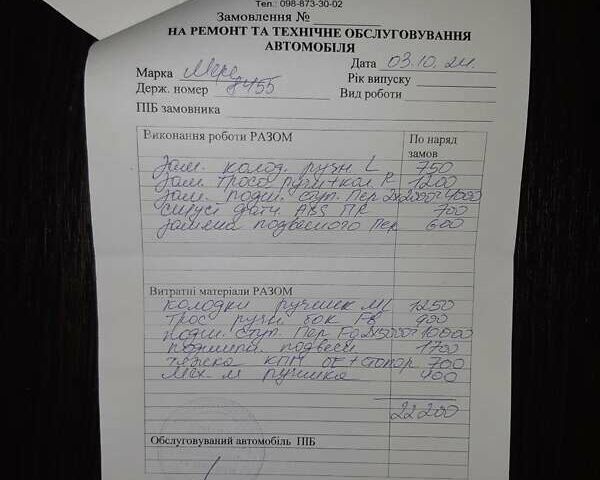 Тел.: 098-873-30-02
Замовлення №
НА РЕМОНТ ТА ТЕХНІЧНЕ ОБСЛУГОВУВАННЯ
АВТОМОБІЛЯ
Дата 03.10.24.
Марка Мерс
Рік випуску
Держ. номер 8455
Вид роботи
ПІБ замовника
Виконання роботи РАЗОМ По наряд замов
Зам. колод. ручн L 750
Зам Трос ручн+кол R 1200
Зам. подш. ступ. Пер 2х2000=4000
датч ABS ПR 700
замена подвесного Пер 600
Витратні матеріали РАЗОМ
колодки ручник 1250
Трос ручн бок 900
подш. ступ. Пер 2х5000=10000
подвесн 1700
КПП стопор 700
Мех-м ручника 400
22 200
Обслуговуваний автомобіль ПІБ